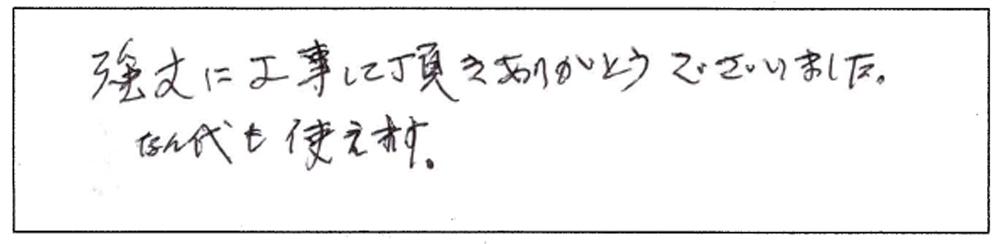 強丈に工事して頂きありがとうございました。
なん代も使えます。